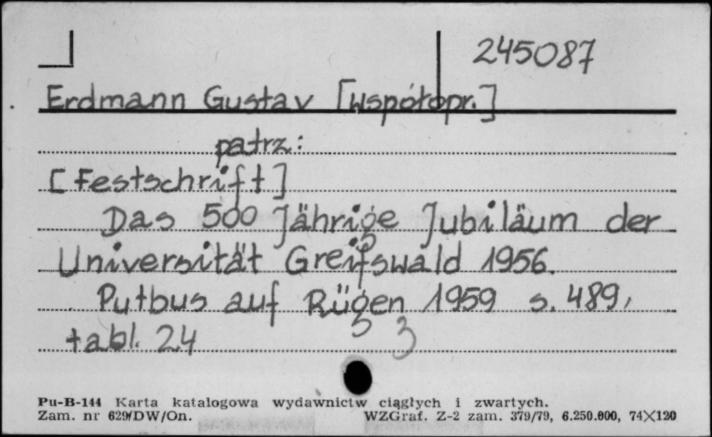 245087
Erdmann Gustav [Współopr.]
patrz:
[Festschrift]
Das 500 Jährige Jubiläum der
Universität Greifswald 1956.
Putbus auf Rügen 1959 s. 489,
tabl. 24
3
Pu-B-144 Karta katalogowa wydawnictw ciągłych i zwartych.
Zam. nr 629/DW/On. WZGraf. Z-2 zam. 379/79, 6.250.000, 74×120